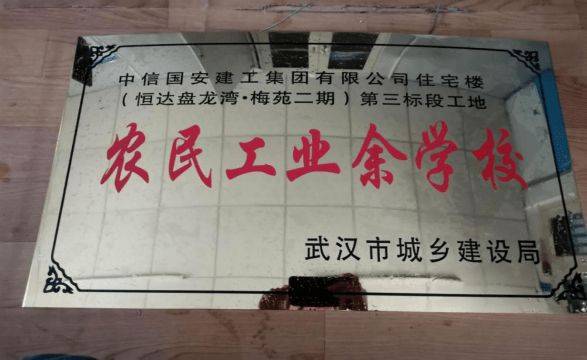 中信国安建工集团有限公司住宅楼
（恒达盘龙湾·梅苑二期）第三标段工地
农民工业余学校
武汉市城乡建设局